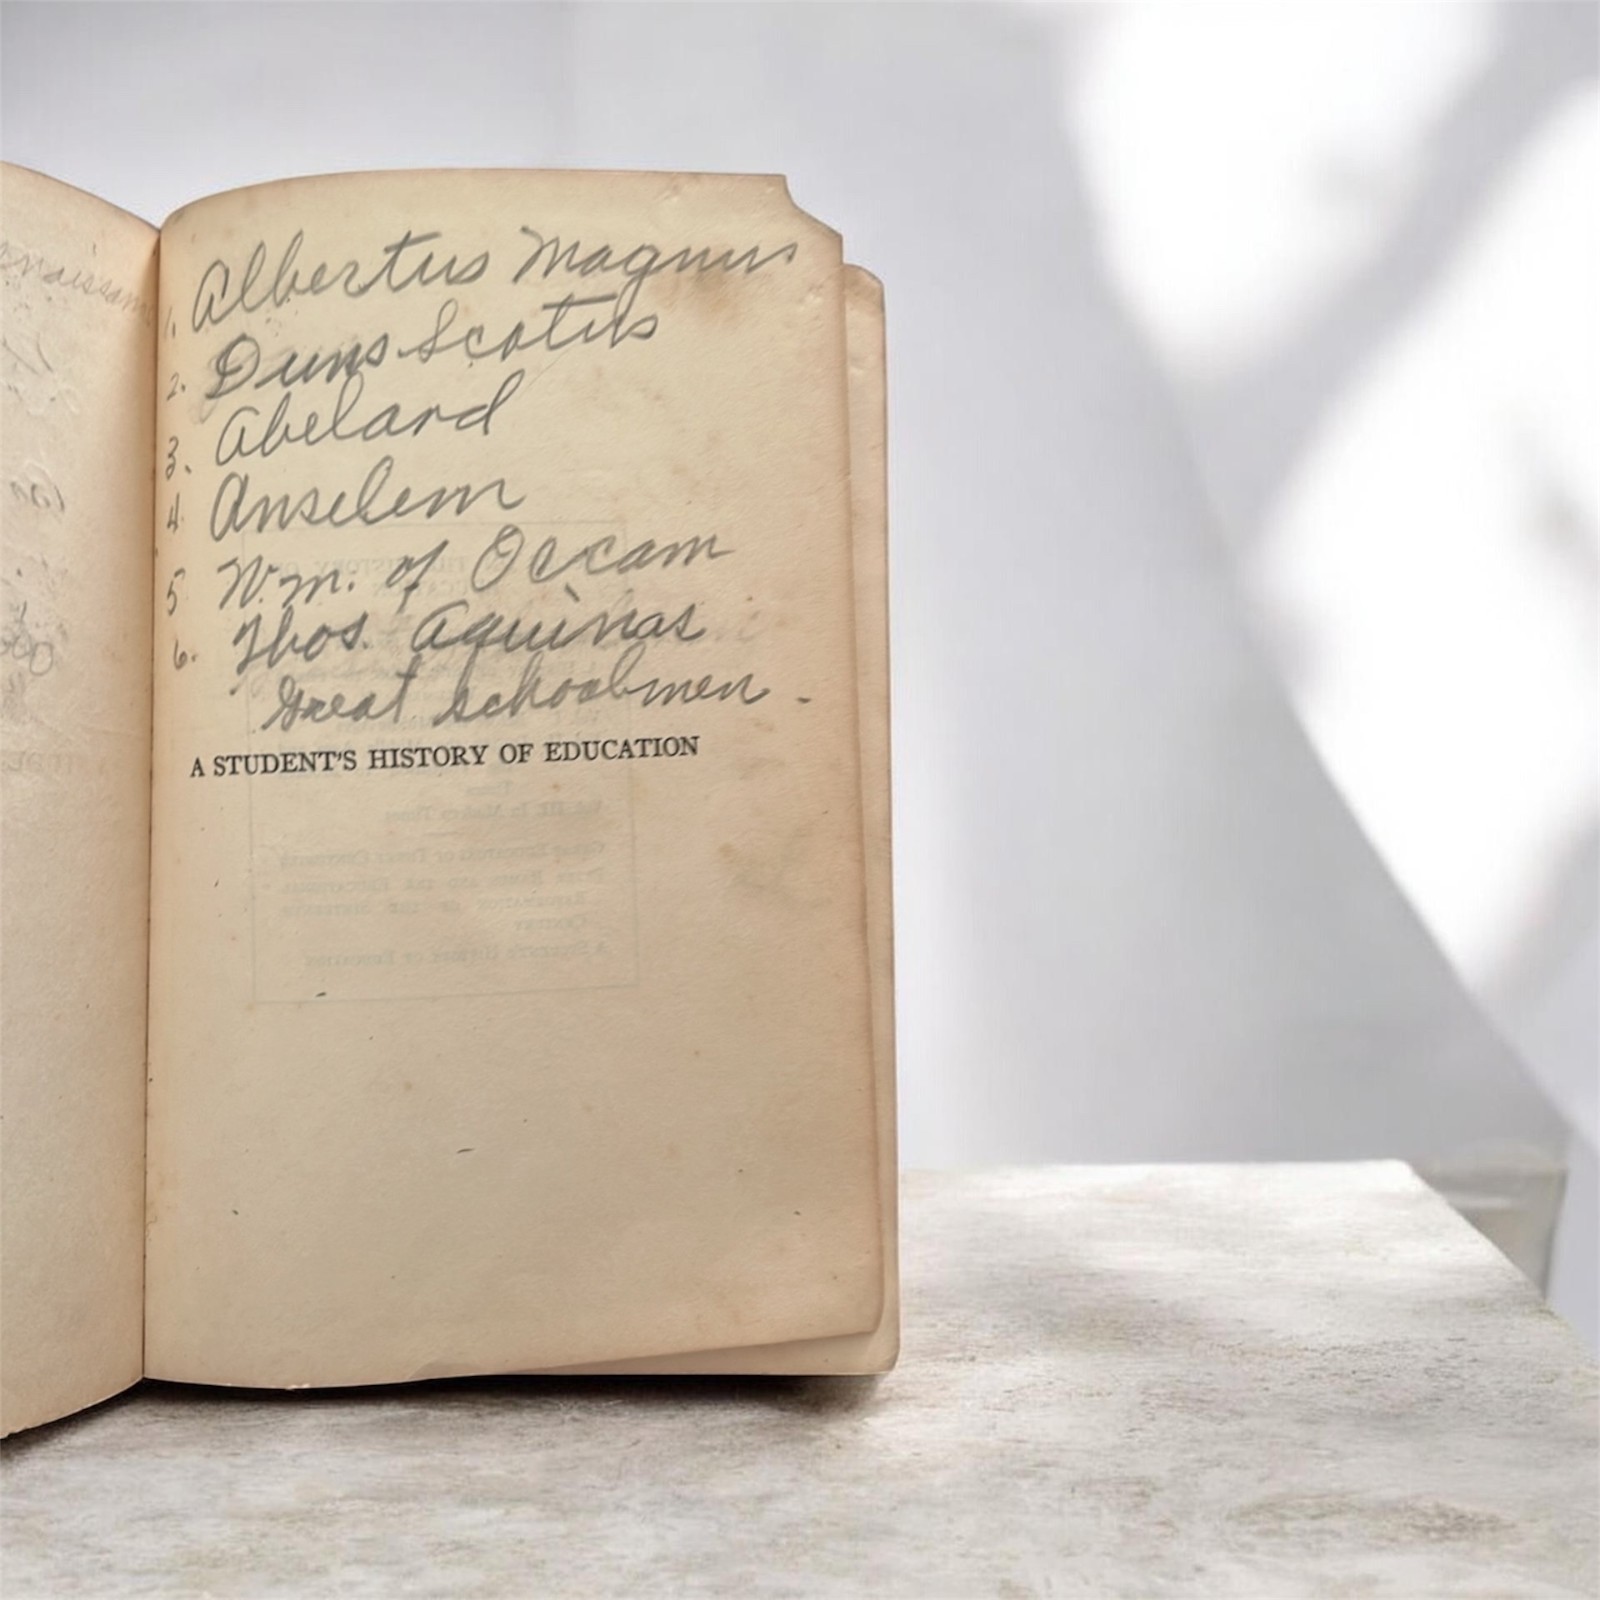 1. Albertus Magnus
2. Duns Scotus
3. Abelard
4. Anselem
5 Wm. of Occam
6. Thos. Aquinas
Great schoolmen -
A STUDENT'S HISTORY OF EDUCATION